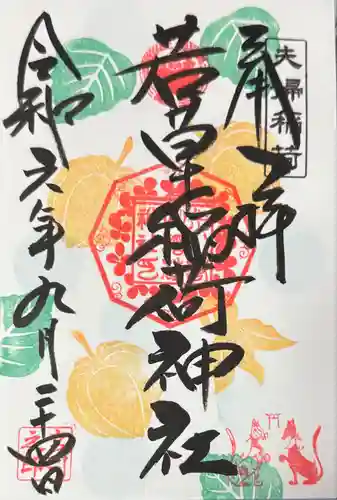 奉拝
夫婦稲荷
若草稲荷神社
令和六年九月二十四日